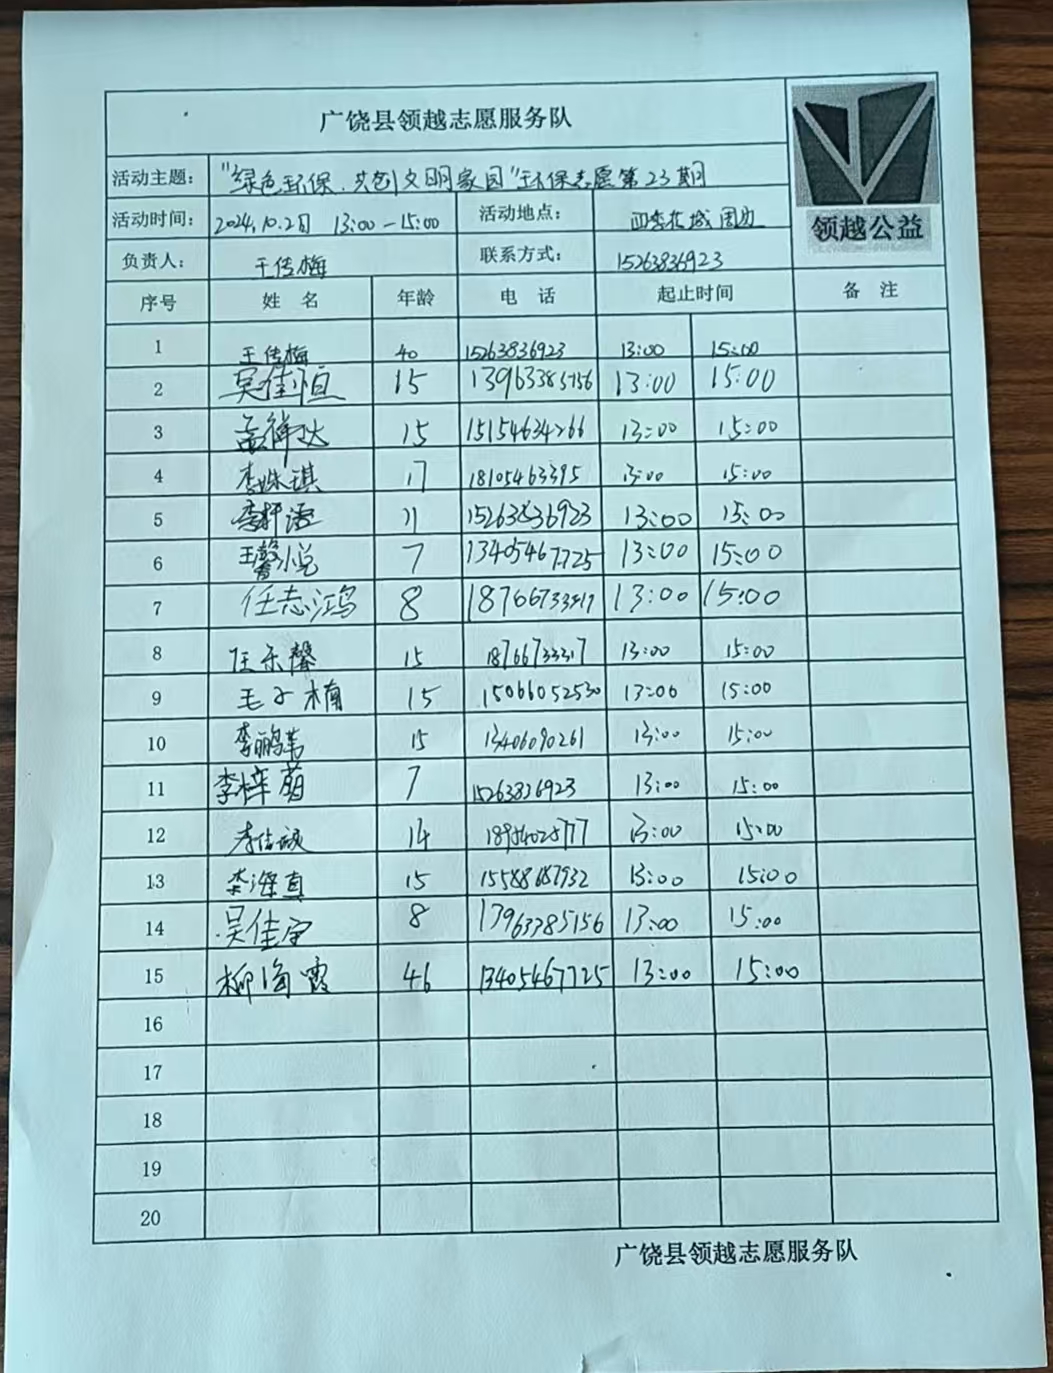 广饶县领越志愿服务队
领越公益
活动主题： "绿色环保.共创文明家园"环保志愿第23期
活动时间： 2024.10.2日 13:00-15:00 活动地点： 四季花城周边
负责人： 王传梅 联系方式： 15263836923
序号 姓名 年龄 电话 起止时间 备注
1 王传梅 40 15263836923 13:00 15:00
2 吴佳恒 15 13963385156 13:00 15:00
3 孟祥达 15 15154634266 13:00 15:00
4 李姝琪 17 18105463395 13:00 15:00
5 李轩 11 15263836923 13:00 15:00
6 王馨悦 7 13405467725 13:00 15:00
7 任志鸿 8 18766733317 13:00 15:00
8 任乐馨 15 18766733317 13:00 15:00
9 毛子楠 15 15066052530 13:00 15:00
10 李鹏 15 13406090261 13:00 15:00
11 李梓萌 7 15263826923 13:00 15:00
12 李信硕 14 13:00 15:00
13 真 15 13:00 15:00
14 吴佳宇 8 13963385156 13:00 15:00
15 柳海霞 46 13405467725 13:00 15:00
16
17
18
19
20
广饶县领越志愿服务队